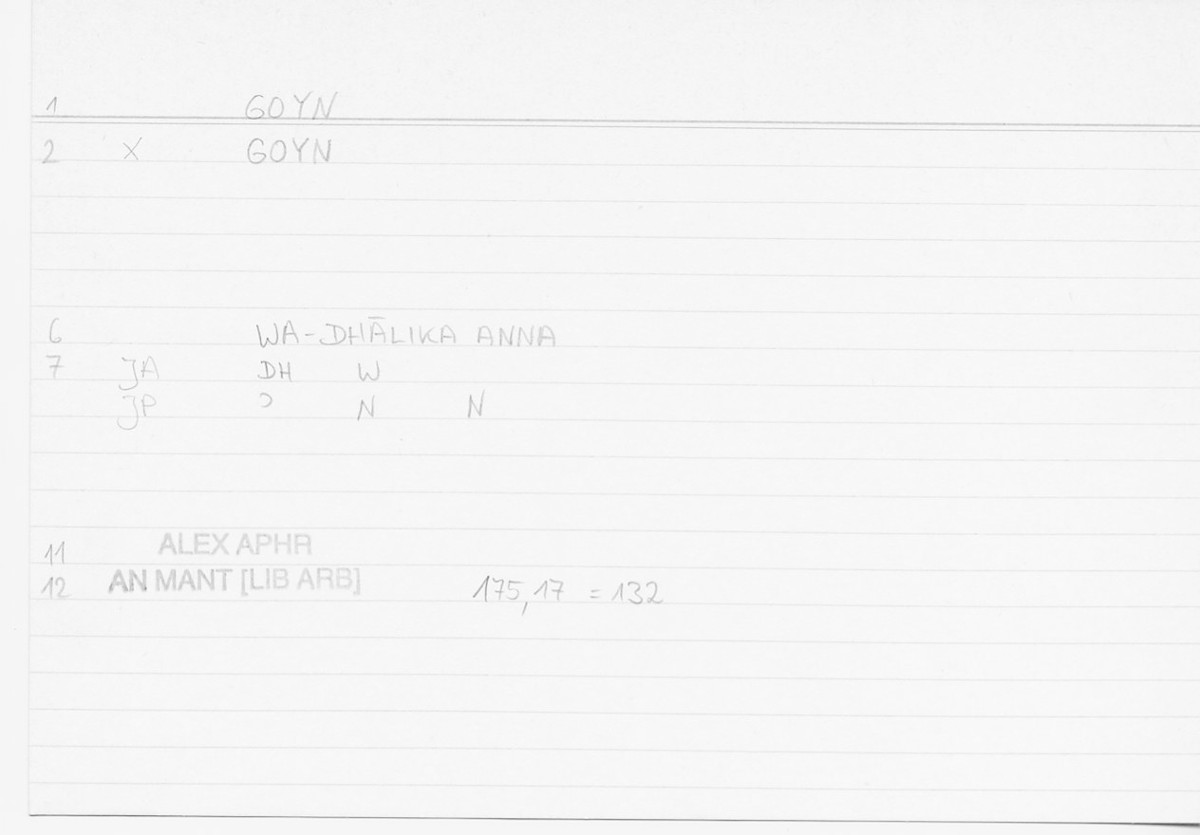 1 GOYN
2 X GOYN
6 WA-DHĀLIKA ANNA
7 JA DH W
JP ɔ N N
11 ALEX APHR
12 AN MANT [LIB ARB] 175,17 = 132